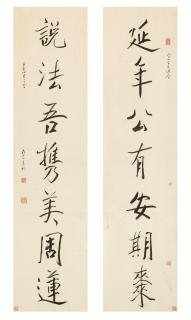 延年公有安期棗
說法吾攜美周蓮